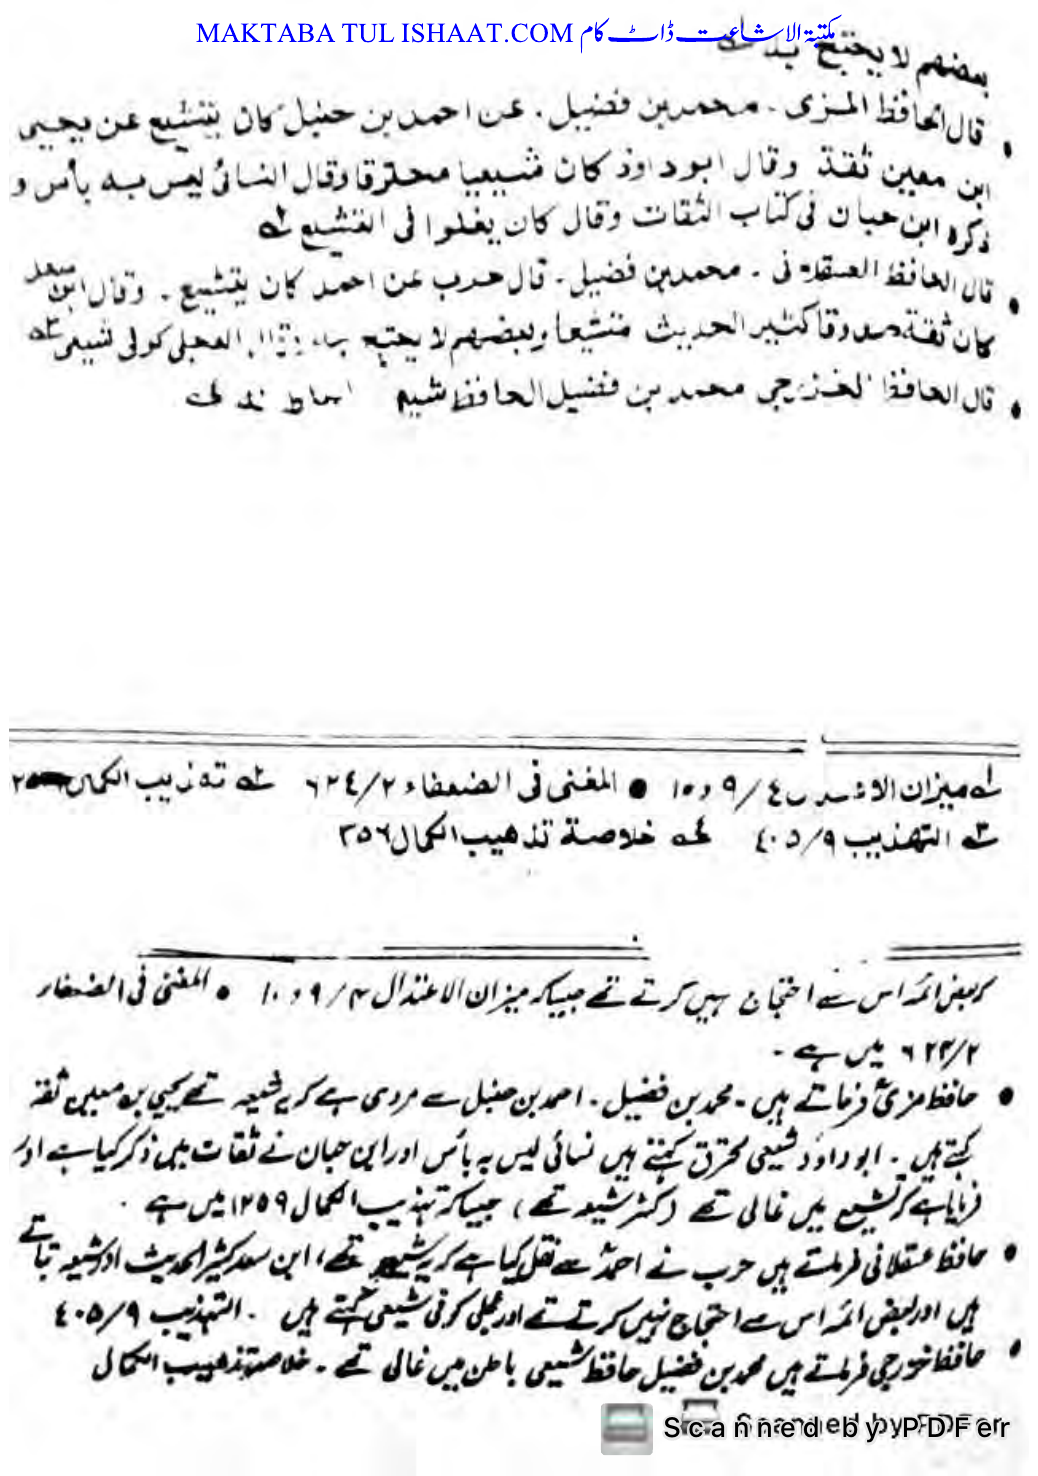 MAKTABA TUL ISHAAT.COM مکتبۃ الاشاعت ڈاٹ کام
بعضهم لا يحتج به
قال الحافظ المزى . محمد بن فضيل . عن احمد بن حنبل كان يتشيع عن يحيى
ابن معين ثقة وقال ابو داؤد كان شيعيا محترقا وقال النسائى ليس به بأس و
ذكره ابن حبان فى كتاب الثقات وقال كان يغلوا فى التشيع
قال الحافظ العسقلانى . محمد بن فضيل . قال حرب عن احمد كان يتشيع . وقال ابن سعد
كان ثقة صدوقا كثير الحديث متشيعا وبعضهم لا يحتج به العجلى كوفى شيعى
قال الحافظ الخزرجى محمد بن فضيل الحافظ شيعى
ميزان الاعتدال ٩/٤ و ١٠ • المغنى فى الضعفاء ٦٢٤/٢ تهذيب الكمال
التهذيب ٤٠٥/٩ خلاصة تذهيب الكمال ٣٥٦
کہ بعض ائمہ اس سے احتجاج نہیں کرتے تھے جیسا کہ میزان الاعتدال ۹/۴ و ۱۰ • المغنی فی الضعفاء
۶۲۴/۲ میں ہے ۔
• حافظ مزیؒ فرماتے ہیں ۔ محمد بن فضیل ۔ احمد بن حنبل سے مروی ہے کہ یہ شیعہ تھے یحیی بن معین ثقہ
کہتے ہیں ۔ ابو داؤد شیعی محترق کہتے ہیں نسائی لیس بہ بأس اور ابن حبان نے ثقات میں ذکر کیا ہے اور
فرمایا ہے کہ تشیع میں غالی تھے (کٹر شیعہ تھے) جیسا کہ تہذیب الکمال ۱۲۵۹ میں ہے ۔
• حافظ عسقلانی فرماتے ہیں حرب نے احمدؒ سے نقل کیا ہے کہ یہ شیعہ تھے، ابن سعد کثیر الحدیث اور شیعہ بتاتے
ہیں اور بعض ائمہ اس سے احتجاج نہیں کرتے تھے اور عجلی کوفی شیعی کہتے ہیں ۔ التہذیب ۴۰۵/۹
• حافظ خزرجی فرماتے ہیں محمد بن فضیل حافظ شیعی باطن میں غالی تھے ۔ خلاصۃ تذہیب الکمال
Scanned by PDFer